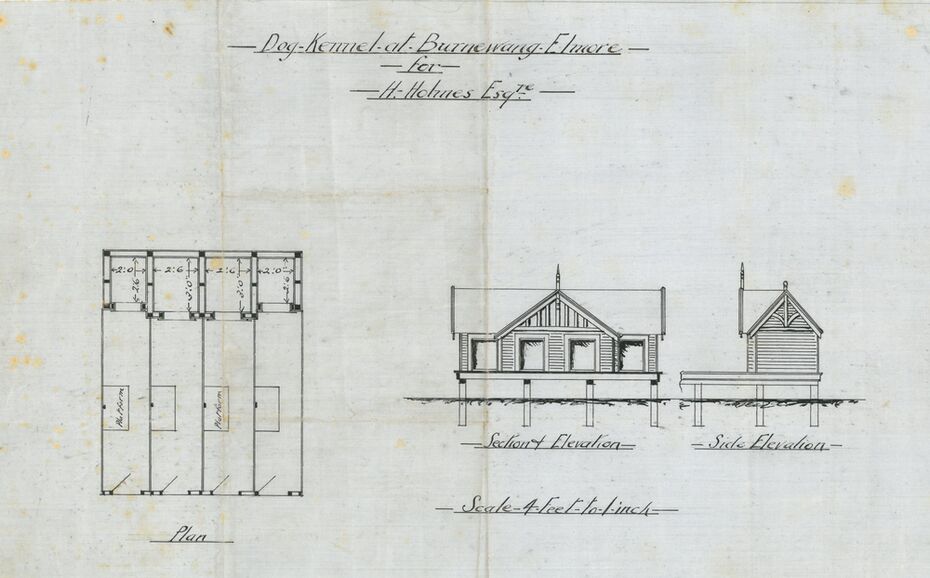 Dog-Kennel-at-Burnewang-Elmore
for
H. Holmes Esqre
2'.0" 2'.6 2'.6 2'.0"
2'.6 3'.0" 3'.0" 2'.6
Platform
Platform
Plan
Section & Elevation
Side Elevation
Scale-4-Feet-to-1-inch